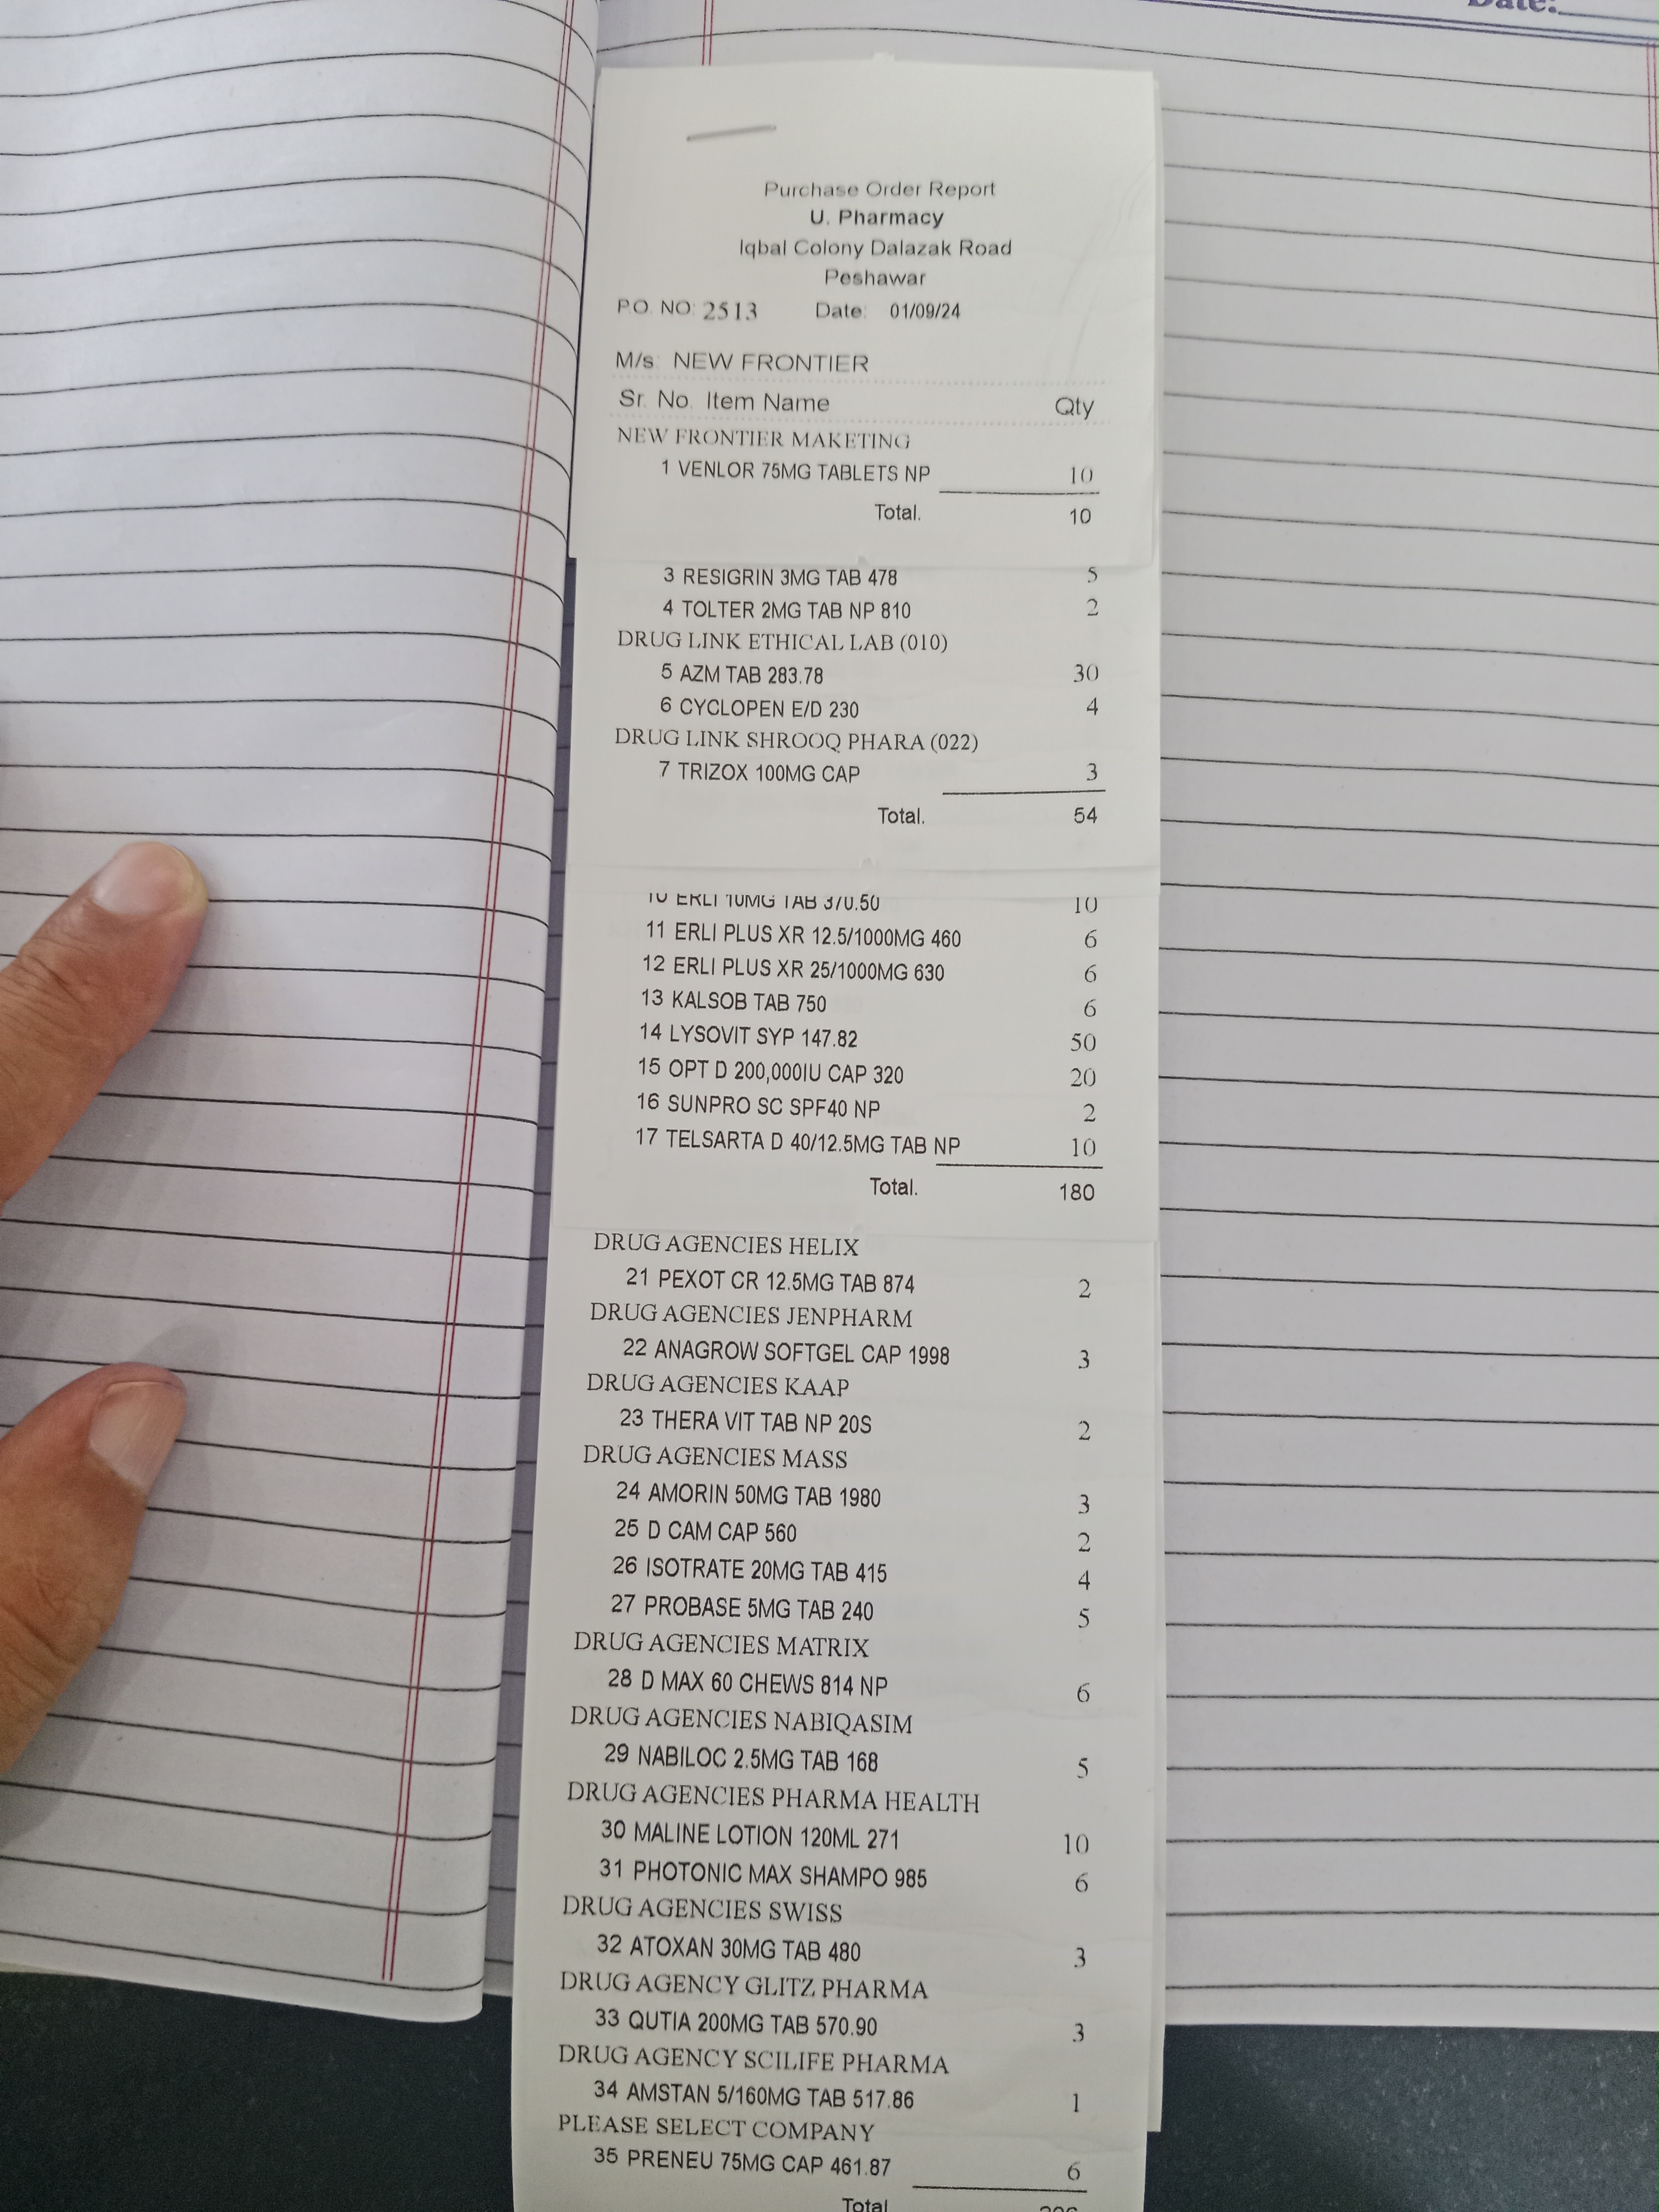 Date:
Purchase Order Report
U. Pharmacy
Iqbal Colony Dalazak Road
Peshawar
P.O. NO: 2513 Date: 01/09/24
M/s: NEW FRONTIER
Sr. No. Item Name Qty
NEW FRONTIER MAKETING
1 VENLOR 75MG TABLETS NP 10
Total. 10
3 RESIGRIN 3MG TAB 478 5
4 TOLTER 2MG TAB NP 810 2
DRUG LINK ETHICAL LAB (010)
5 AZM TAB 283.78 30
6 CYCLOPEN E/D 230 4
DRUG LINK SHROOQ PHARA (022)
7 TRIZOX 100MG CAP 3
Total. 54
10 ERLI 10MG TAB 370.50 10
11 ERLI PLUS XR 12.5/1000MG 460 6
12 ERLI PLUS XR 25/1000MG 630 6
13 KALSOB TAB 750 6
14 LYSOVIT SYP 147.82 50
15 OPT D 200,000IU CAP 320 20
16 SUNPRO SC SPF40 NP 2
17 TELSARTA D 40/12.5MG TAB NP 10
Total. 180
DRUG AGENCIES HELIX
21 PEXOT CR 12.5MG TAB 874 2
DRUG AGENCIES JENPHARM
22 ANAGROW SOFTGEL CAP 1998 3
DRUG AGENCIES KAAP
23 THERA VIT TAB NP 20S 2
DRUG AGENCIES MASS
24 AMORIN 50MG TAB 1980 3
25 D CAM CAP 560 2
26 ISOTRATE 20MG TAB 415 4
27 PROBASE 5MG TAB 240 5
DRUG AGENCIES MATRIX
28 D MAX 60 CHEWS 814 NP 6
DRUG AGENCIES NABIQASIM
29 NABILOC 2.5MG TAB 168 5
DRUG AGENCIES PHARMA HEALTH
30 MALINE LOTION 120ML 271 10
31 PHOTONIC MAX SHAMPO 985 6
DRUG AGENCIES SWISS
32 ATOXAN 30MG TAB 480 3
DRUG AGENCY GLITZ PHARMA
33 QUTIA 200MG TAB 570.90 3
DRUG AGENCY SCILIFE PHARMA
34 AMSTAN 5/160MG TAB 517.86 1
PLEASE SELECT COMPANY
35 PRENEU 75MG CAP 461.87 6
Total